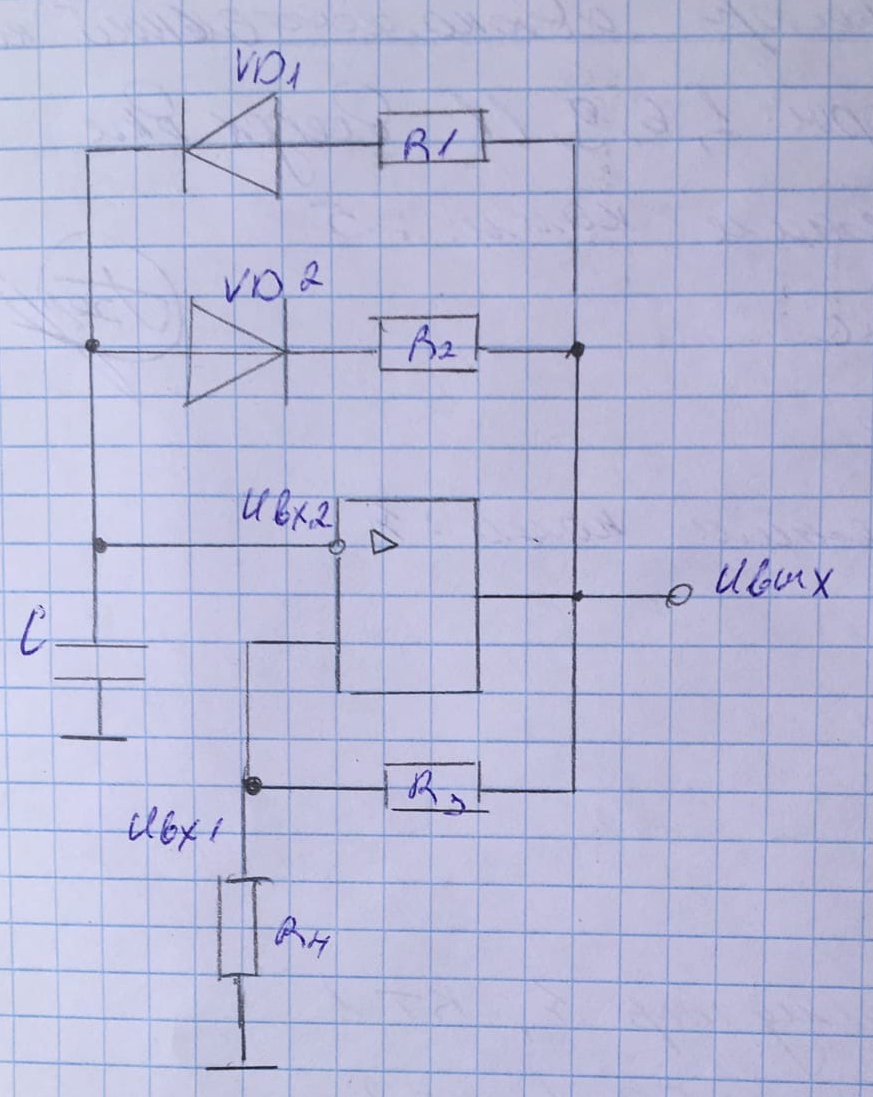 VD1
R1
VD2
R2
Uвх2
Uвых
C
R3
Uвх1
R4